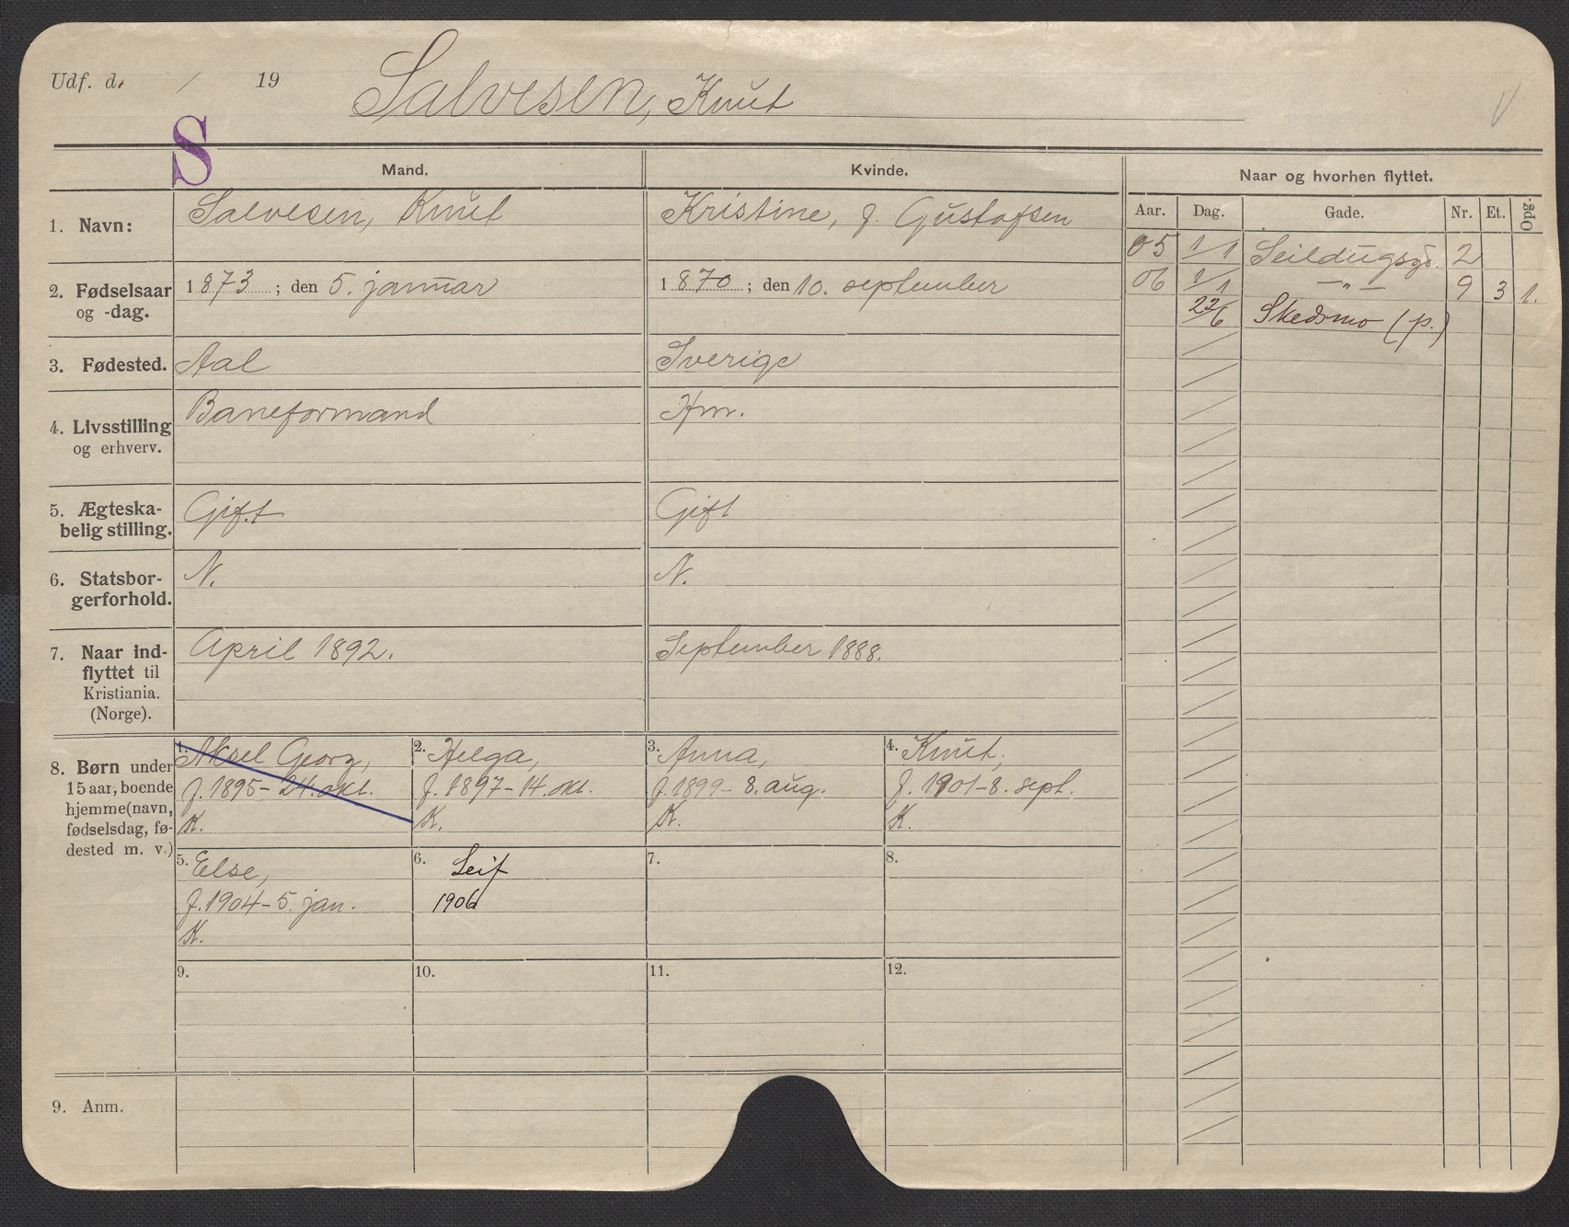 Udf. d. / 19
Salvesen, Knut
V
S
Mand.
Kvinde.
Naar og hvorhen flyttet.
Aar. Dag. Gade. Nr. Et. Opg.
1. Navn:
Salvesen, Knut
Kristine, f. Gustafsen
05 1/1 Seildugsgd. 2
06 1/1 — „ — 9 3 1.
22/6 Skedsmo (p.)
2. Fødselsaar
og -dag.
1873 ; den 5. januar
1870 ; den 10. september
3. Fødested.
Aal
Sverige
4. Livsstilling
og erhverv.
Baneformand
Hm.
5. Ægteska-
belig stilling.
Gift
Gift
6. Statsbor-
gerforhold.
N.
N.
7. Naar ind-
flyttet til
Kristiania.
(Norge).
April 1892.
September 1888.
8. Børn under
15 aar, boende
hjemme (navn,
fødselsdag, fø-
dested m. v.)
1. Aksel Georg,
f. 1895 - 24. okt.
K.
2. Helga,
f. 1897 - 14. okt.
K.
3. Anna,
f. 1899 - 8. aug.
K.
4. Knut,
f. 1901 - 8. sept.
K.
5. Else,
f. 1904 - 5. jan.
K.
6. Leif
1906
7.
8.
9.
10.
11.
12.
9. Anm.